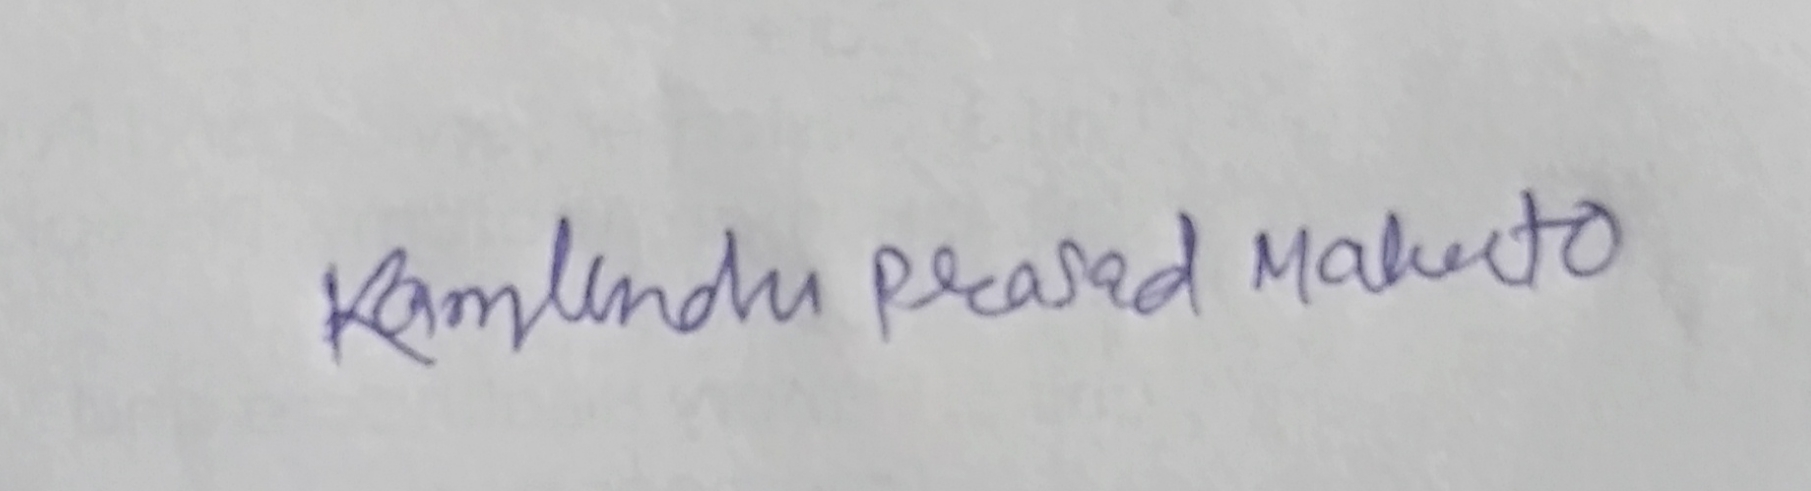 Kamlendu Prasad Mahato